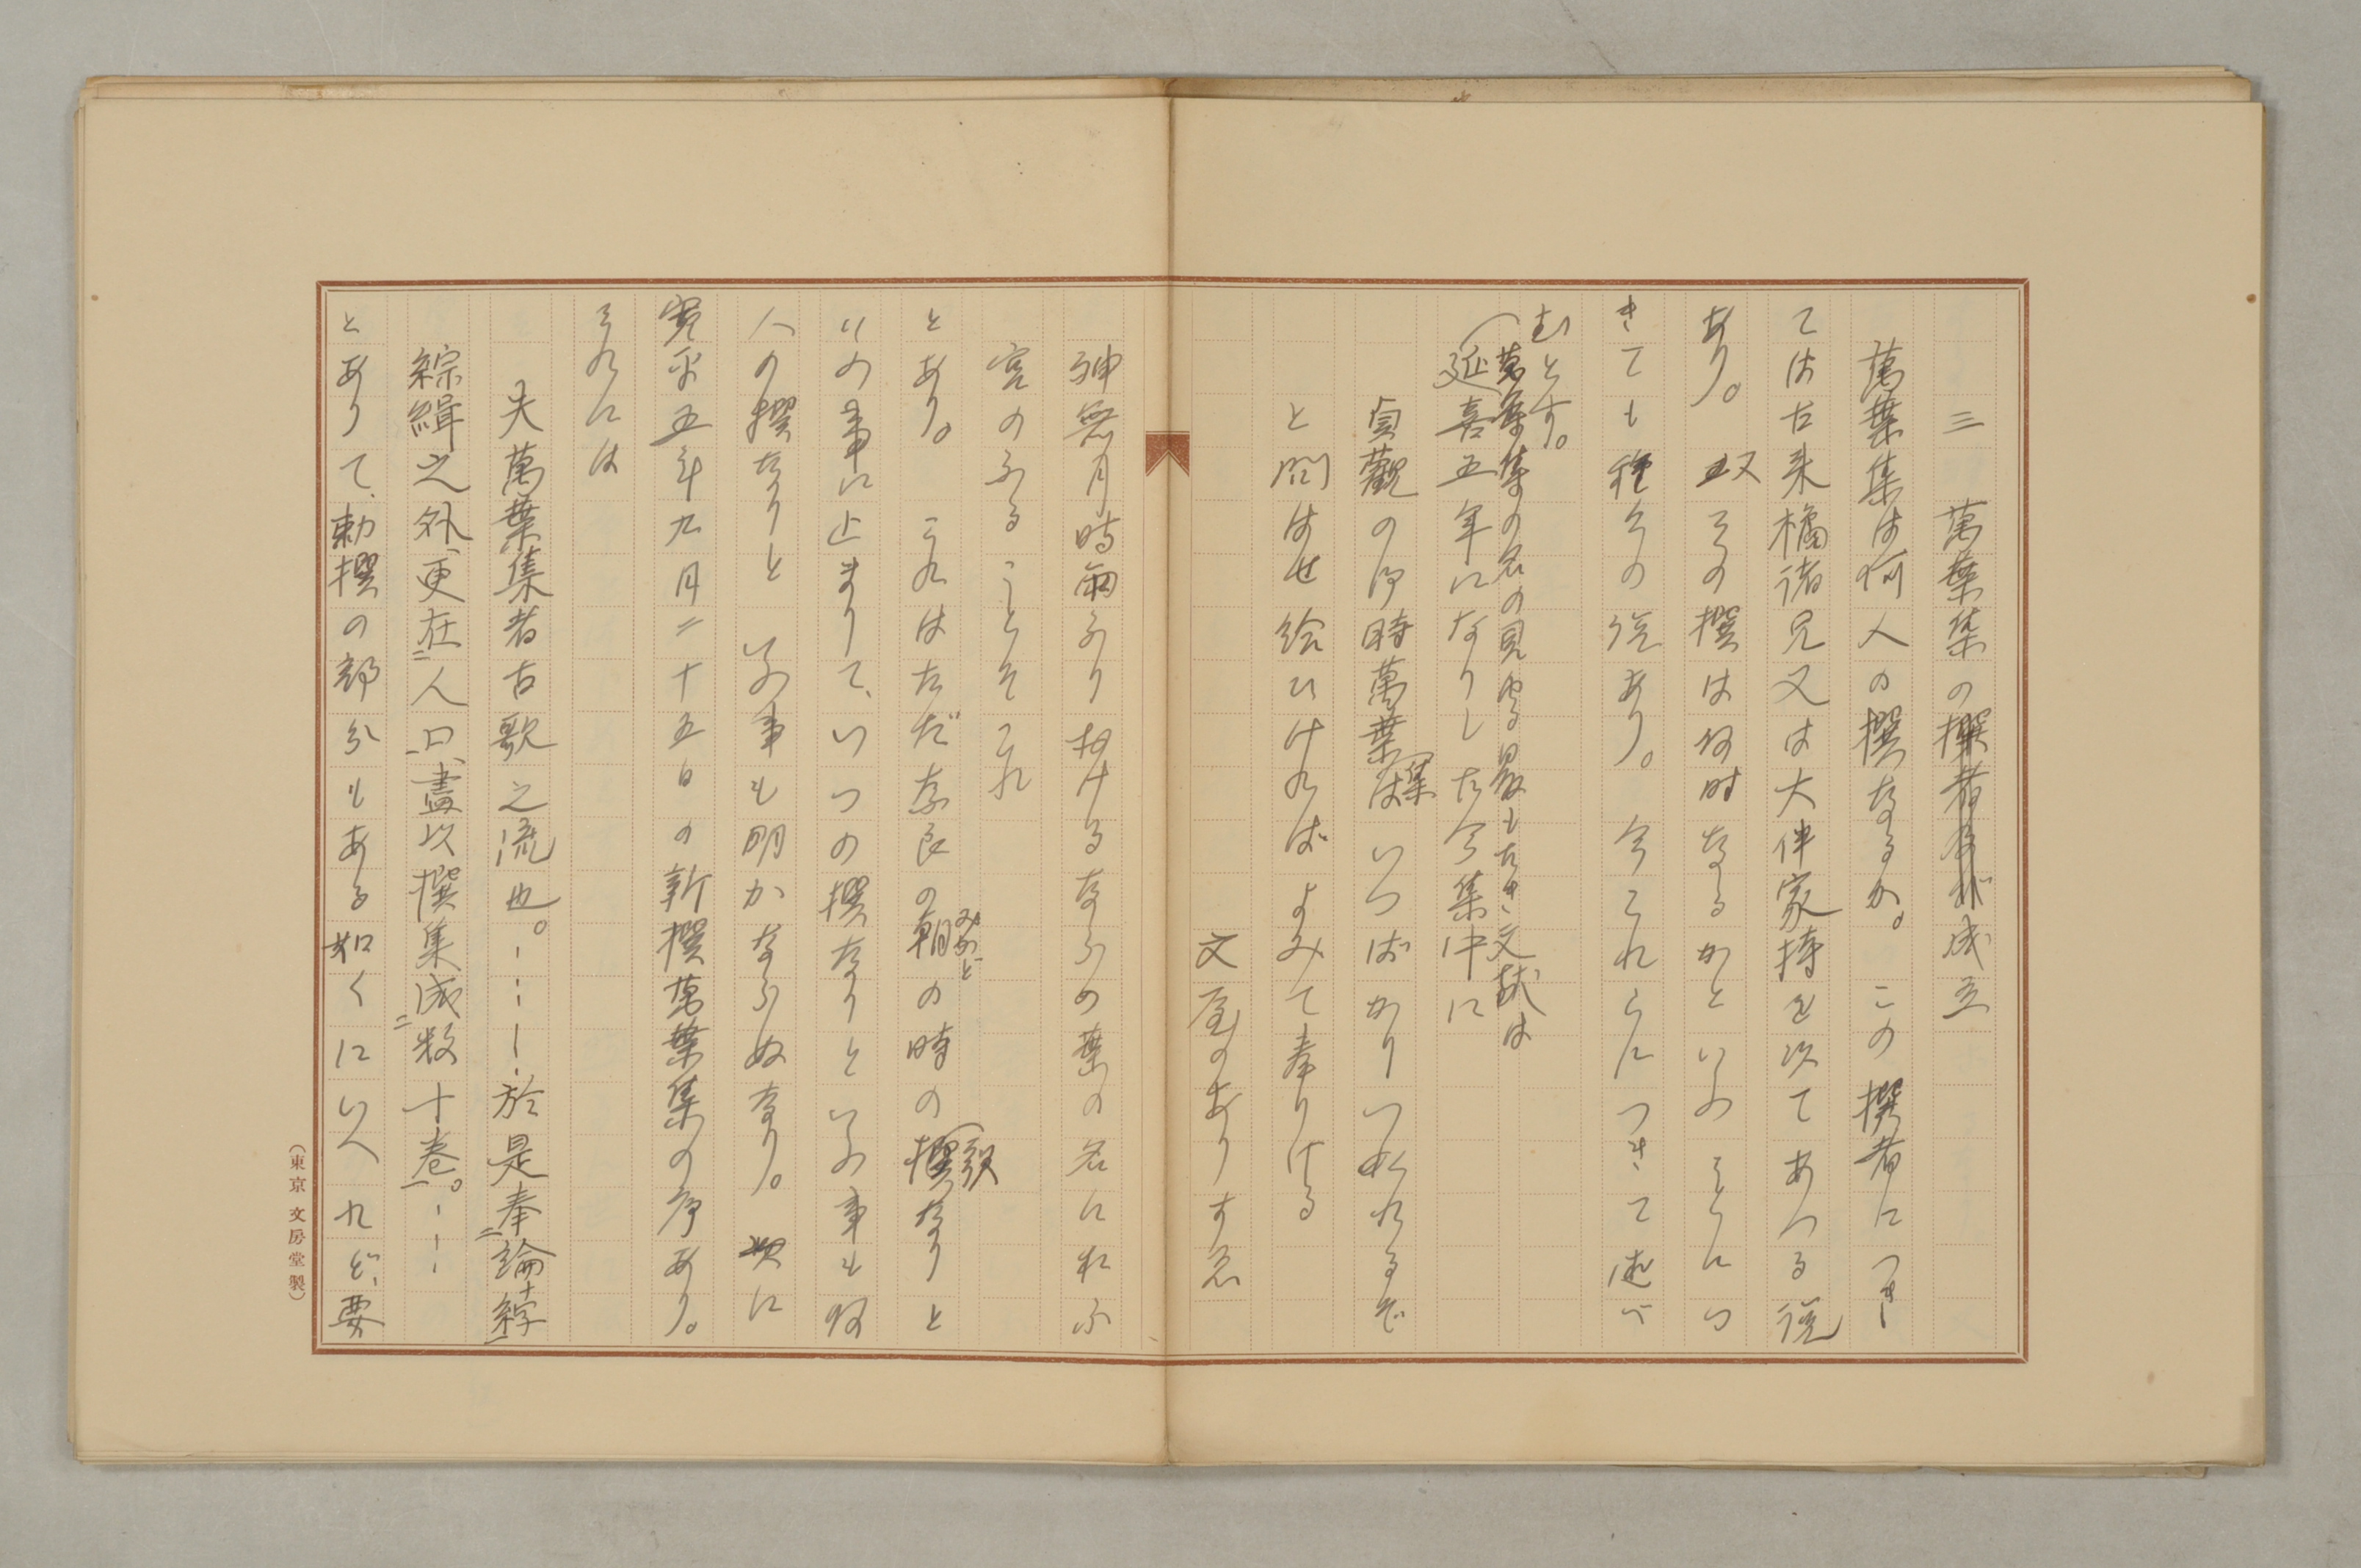 三　萬葉集の撰者及が成立
萬葉集は何人の撰なるか。この撰者につき
ては古来橘諸兄又は大伴家持を以てあつる説
あり。又その撰は何時なるかといふことにつ
きても種々の説あり。今これらにつきて述べ
むとす。
萬葉集の名の見ゆる最も古き文献は
延喜五年になりし古今集中に
貞觀の御時萬葉集はいつばかりつくれるぞ
と問はせ給ひければよみて奉りける
文屋のありすゑ
神無月時雨ふりおけるならの葉の名におふ
宮のふることぞこれ
とあり。これはただ奈良の朝の時の撰なりと
みかど
歌
いふ事に止まりて、いつの撰なりといふ事も何
人の撰なりといふ事も明かならぬなり。次に
寛平五年九月二十五日の新撰萬葉集の序あり。
それには
夫萬葉集者古歌之流也。……於是奉二綸綍一
綜緝之外、更在二人口一、盡以撰集成二数十巻一。……
とありて、勅撰の部分もある如くにいへれど、要
（東京 文房堂製）